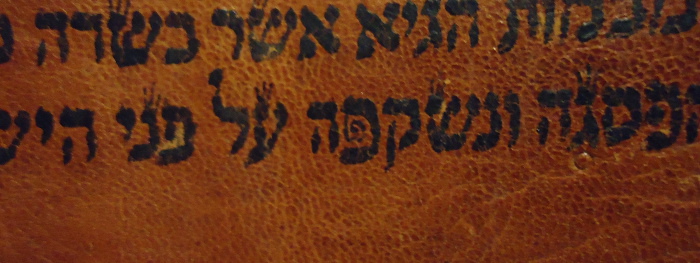 ומבמות הגיא אשר בשדה
הפסגה ונשקפה על פני